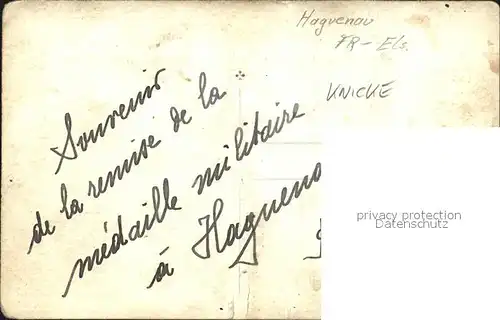 Haguenau
FR-Els.
KNICKE
Souvenir
de la remise de la
médaille militaire
à Haguena
privacy protection
Ansichtskarten-Center.de